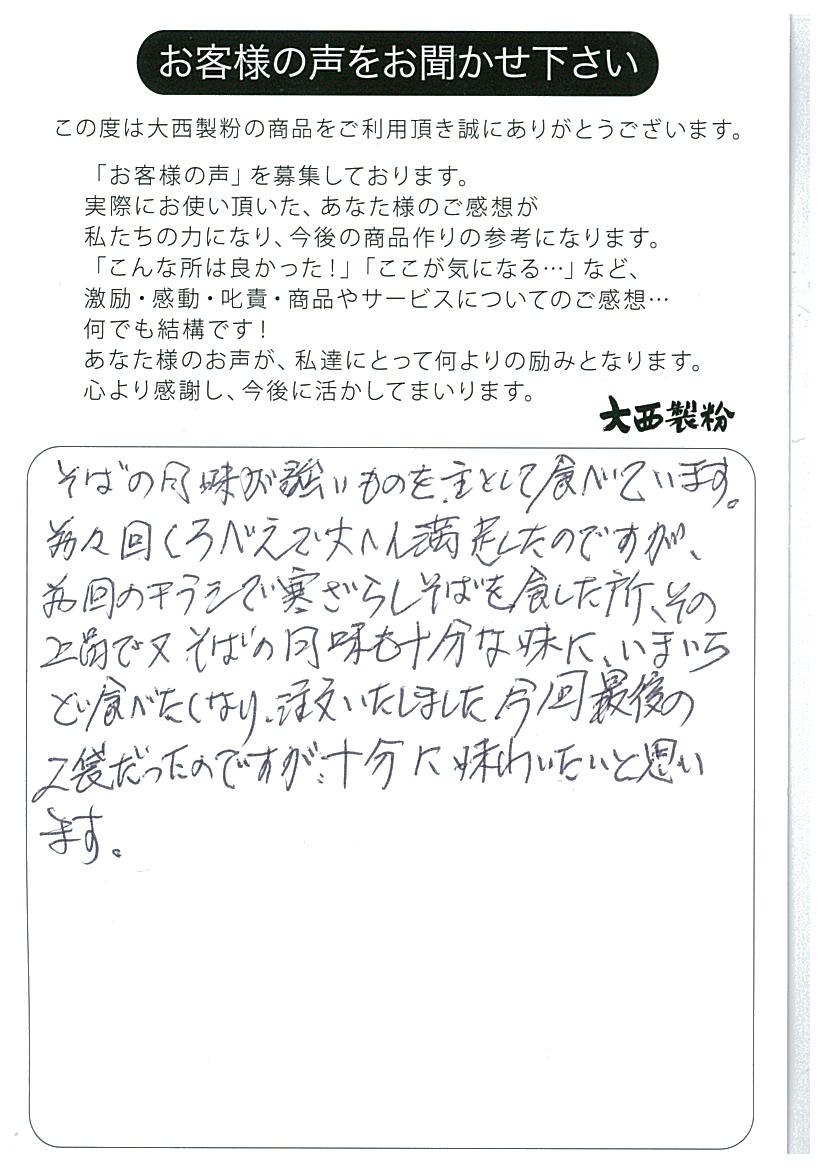 お客様の声をお聞かせ下さい
この度は大西製粉の商品をご利用頂き誠にありがとうございます。
「お客様の声」を募集しております。
実際にお使い頂いた、あなた様のご感想が
私たちの力になり、今後の商品作りの参考になります。
「こんな所は良かった！」「ここが気になる…」など、
激励・感動・叱責・商品やサービスについてのご感想…
何でも結構です！
あなた様のお声が、私達にとって何よりの励みとなります。
心より感謝し、今後に活かしてまいります。
大西製粉
そばの風味が強いものを主として食べています。
前々回くろべえで大へん満足したのですが、
前回のチラシで寒ざらしそばを食した所、その
上品で又そばの風味も十分な味に、いまいち
ど食べたくなり、注文いたしました 今回最後の
2袋だったのですが十分に味わいたいと思い
ます。